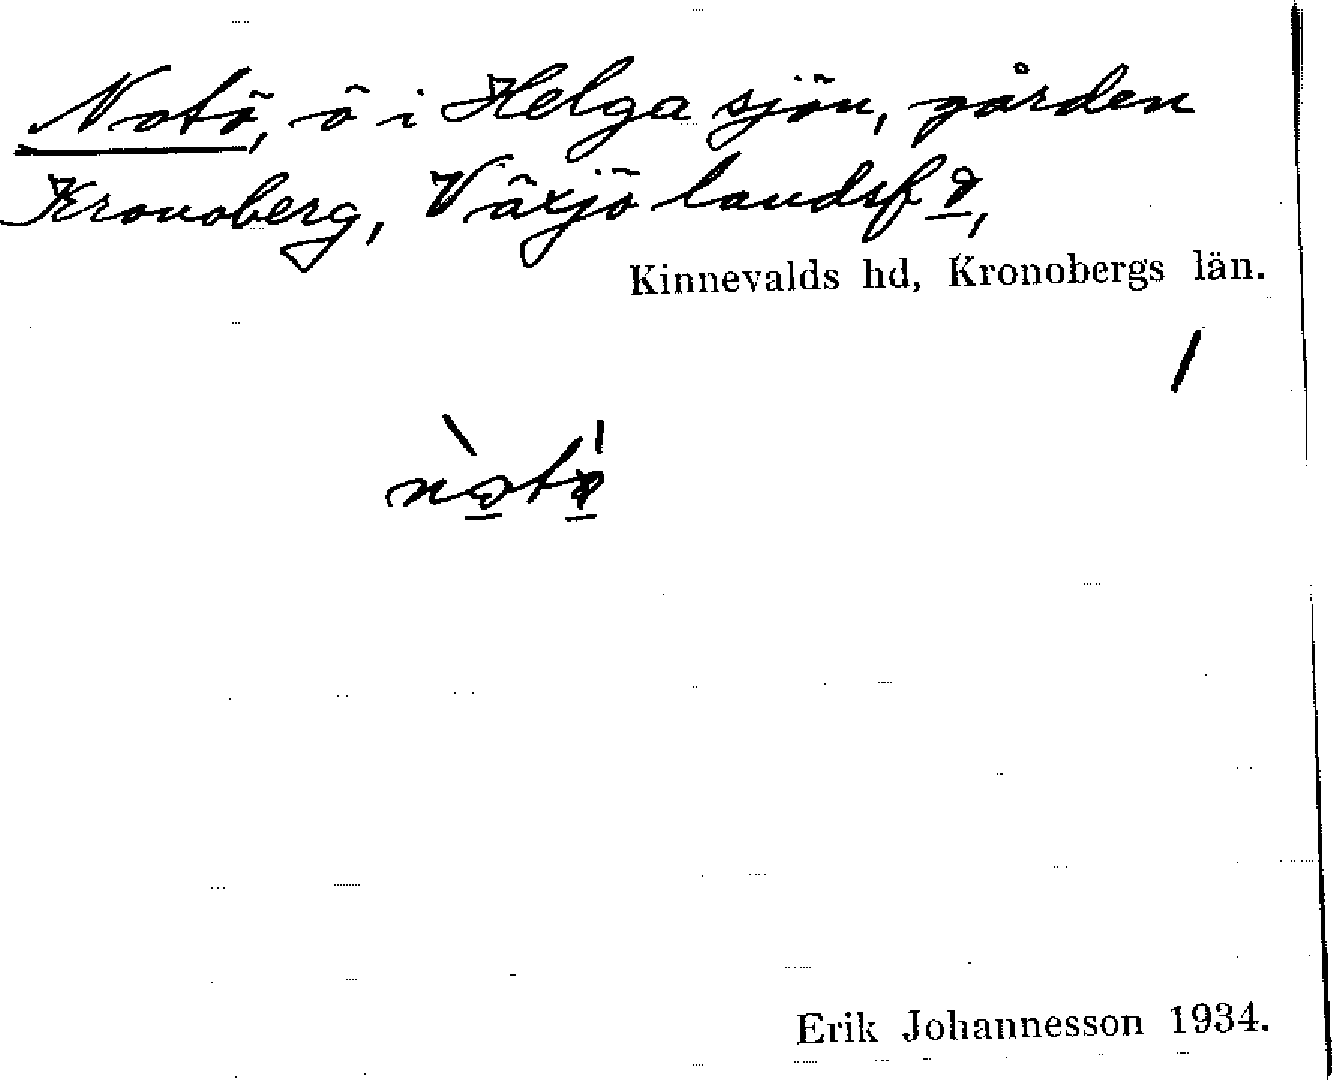 Notö, ö i Helga sjön, gården
Kronoberg, Växjö landsf⁠_⁠,
Kinnevalds hd, Kronobergs län.
Erik Johannesson 1934.